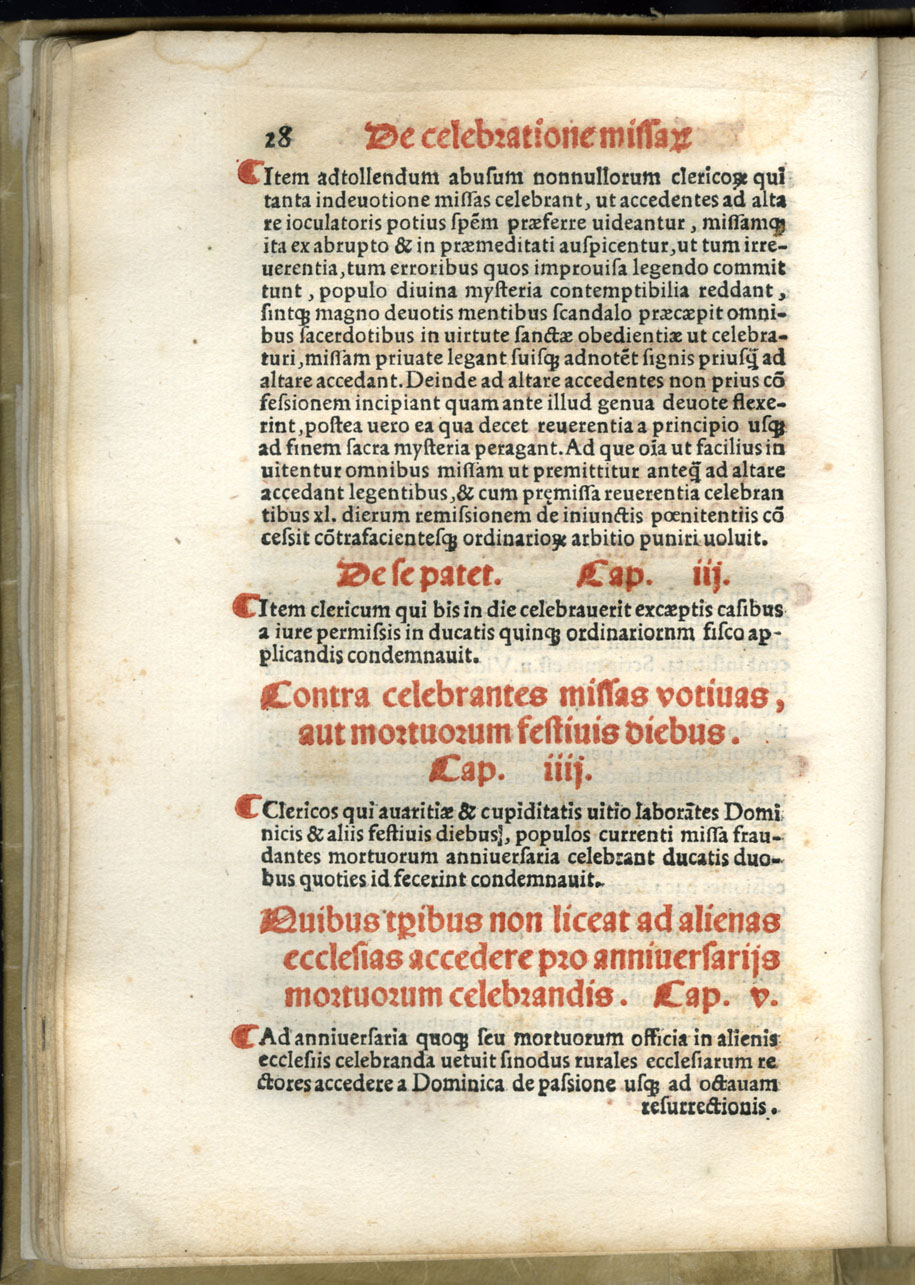 28 De celebratione missaꝝ
Item adtollendum abusum nonnullorum clericoꝝ qui
tanta indeuotione missas celebrant, ut accedentes ad alta
re ioculatoris potius spẽm præferre uideantur, missamqꝫ
ita ex abrupto & in præmeditati auspicentur, ut tum irre-
uerentia, tum erroribus quos improuisa legendo commit
tunt, populo diuina mysteria contemptibilia reddant,
sintqꝫ magno deuotis mentibus scandalo præcæpit omni-
bus sacerdotibus in uirtute sanctæ obedientiæ ut celebra-
turi, missam priuate legant suisqꝫ adnotẽt signis priusq̃ ad
altare accedant. Deinde ad altare accedentes non prius cõ
fessionem incipiant quam ante illud genua deuote flexe-
rint, postea uero ea qua decet reuerentia a principio usqꝫ
ad finem sacra mysteria peragant. Ad que oĩa ut facilius in
uitentur omnibus missam ut premittitur anteq̃ ad altare
accedant legentibus, & cum pręmissa reuerentia celebran
tibus xl. dierum remissionem de iniunctis pœnitentiis cõ
cessit cõtrafacientesqꝫ ordinarioꝝ arbitio puniri uoluit.
De se patet. Cap. iij.
Item clericum qui bis in die celebrauerit excæptis casibus
a iure permissis in ducatis quinqꝫ ordinariornm fisco ap-
plicandis condemnauit.
Contra celebrantes missas votiuas,
aut mortuorum festiuis diebus.
Cap. iiij.
Clericos qui auaritiæ & cupiditatis uitio laborãtes Domi
nicis & aliis festiuis diebus, populos currenti missa frau-
dantes mortuorum anniuersaria celebrant ducatis duo-
bus quoties id fecerint condemnauit.
Quibus tꝑibus non liceat ad alienas
ecclesias accedere pro anniuersarijs
mortuorum celebrandis. Cap. v.
Ad anniuersaria quoqꝫ seu mortuorum officia in alienis
ecclesiis celebranda uetuit sinodus rurales ecclesiarum re
ctores accedere a Dominica de passione usqꝫ ad octauam
resurrectionis.